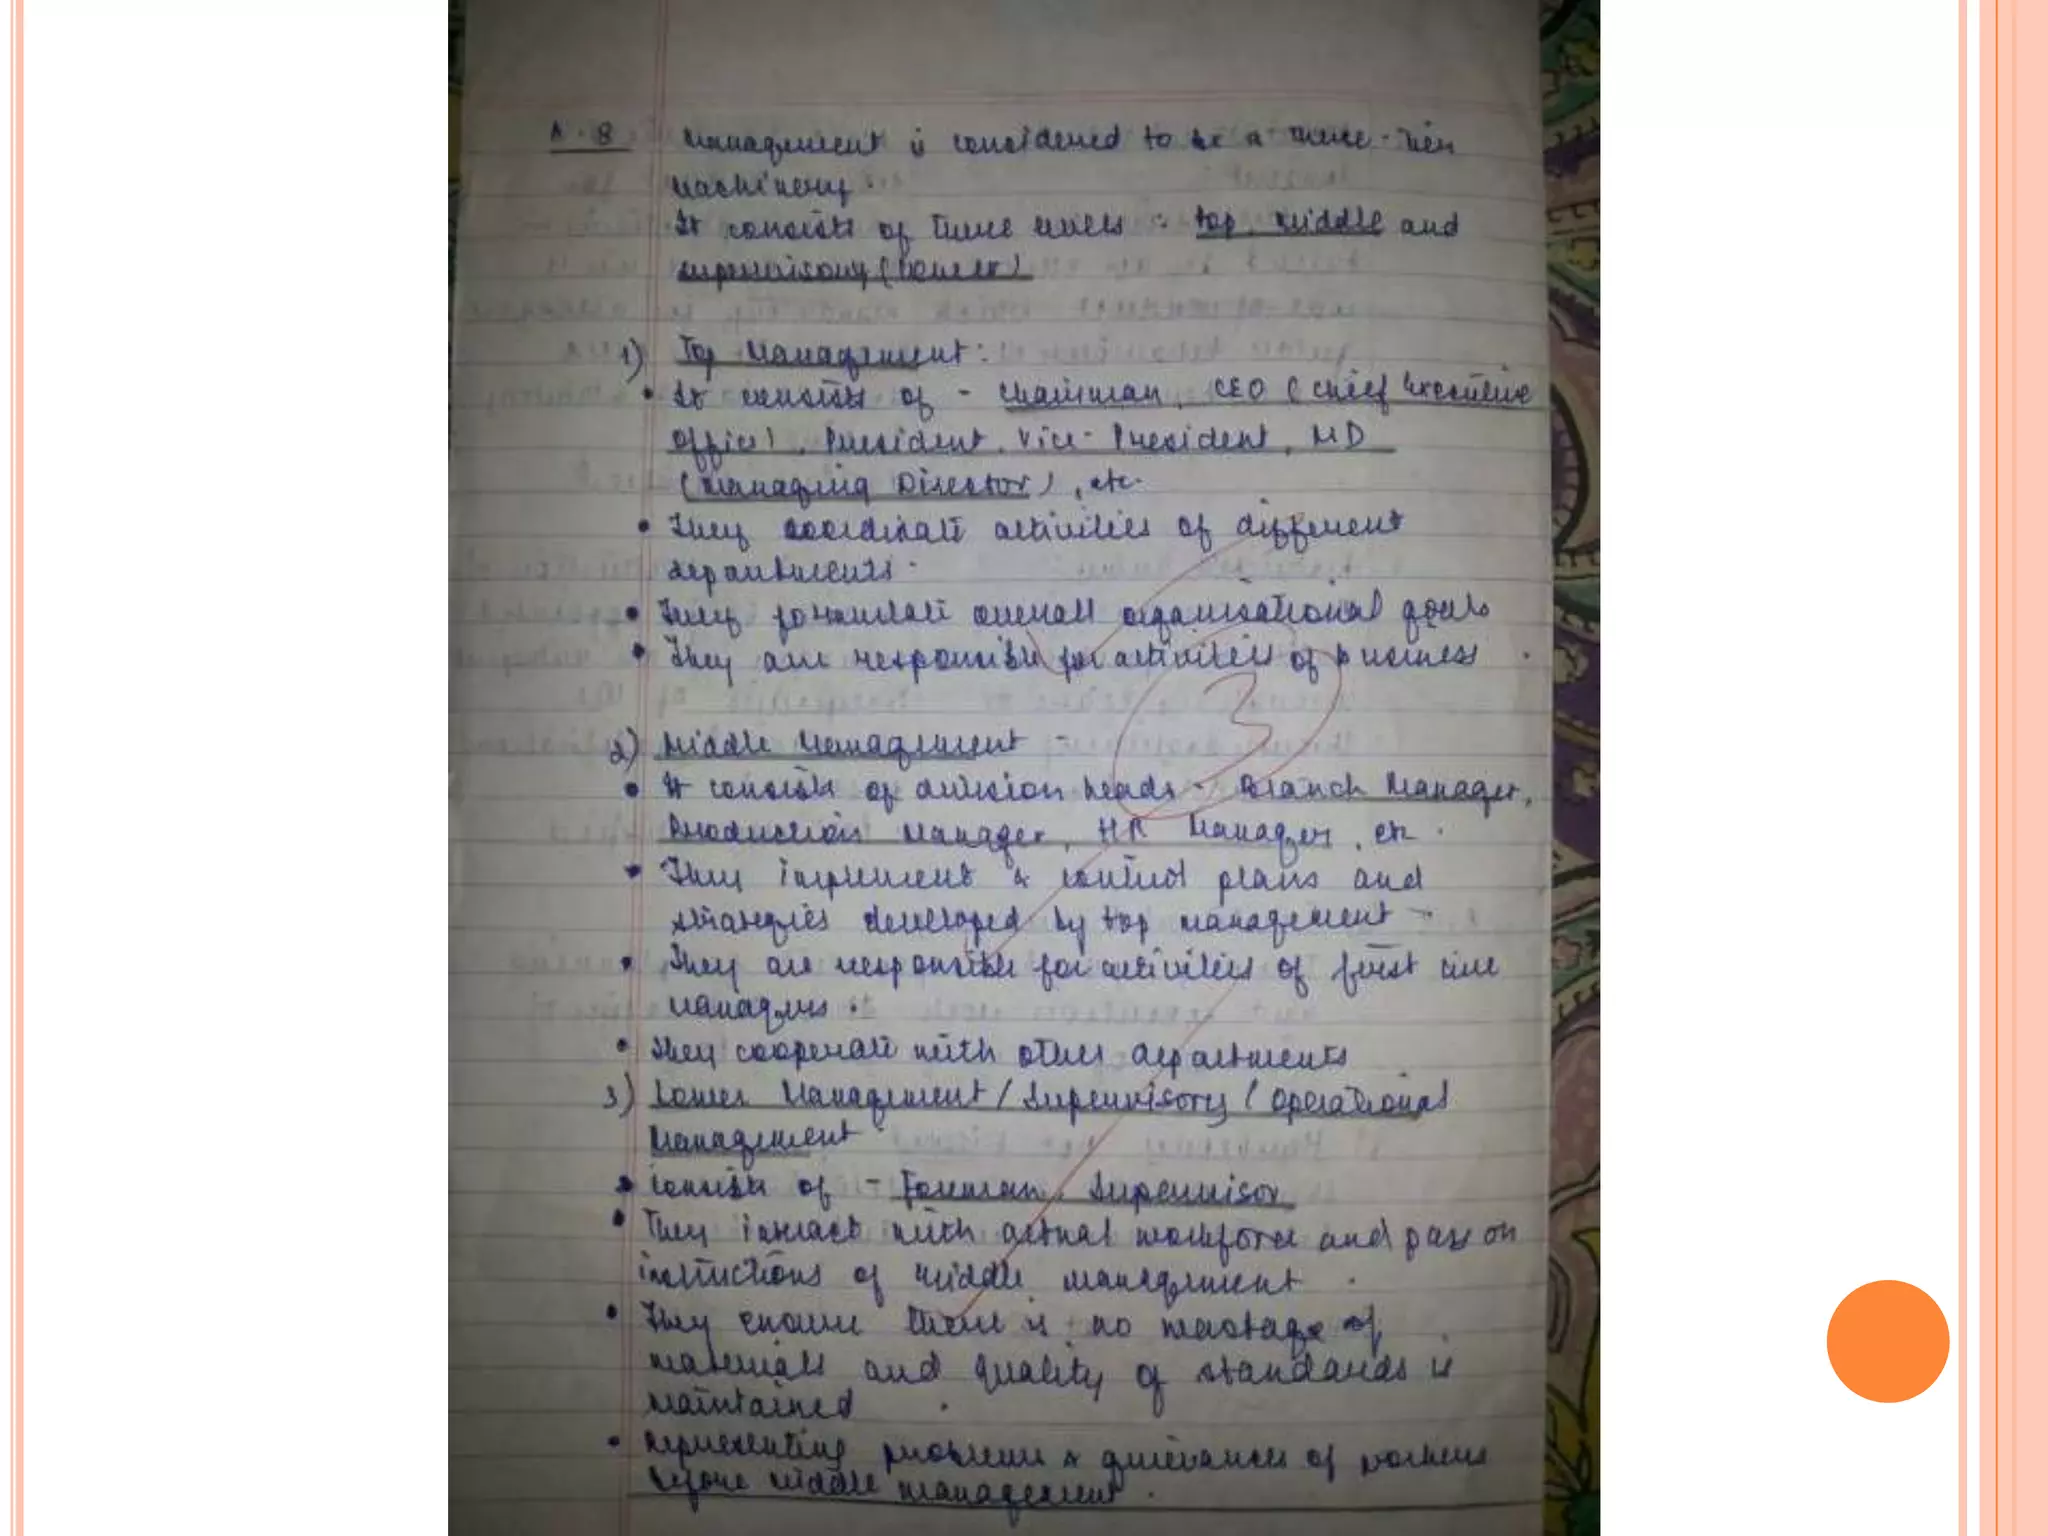 A.8 Management is considered to be a three-tier
machinery.
It consists of three levels : top, middle and
supervisory (lower)
1) Top Management :
• It consists of - Chairman, CEO (Chief Executive
Office), President, Vice-President, MD
(Managing Director), etc.
• They coordinate activities of different
departments.
• They formulate overall organisational goals
• They are responsible for activities of business .
3
2) Middle Management -
• It consists of division heads - Branch Manager,
Production Manager, HR Manager, etc.
• They implement & control plans and
strategies developed by top management -
• They are responsible for activities of first line
managers .
• They cooperate with other departments
3) Lower Management / Supervisory / Operational
Management
• Consists of - Foreman, Supervisor
• They interact with actual workforce and pass on
instructions of middle management .
• They ensure there is no wastage of
materials and quality of standards is
maintained .
• Representing problems & grievances of workers
before middle management .